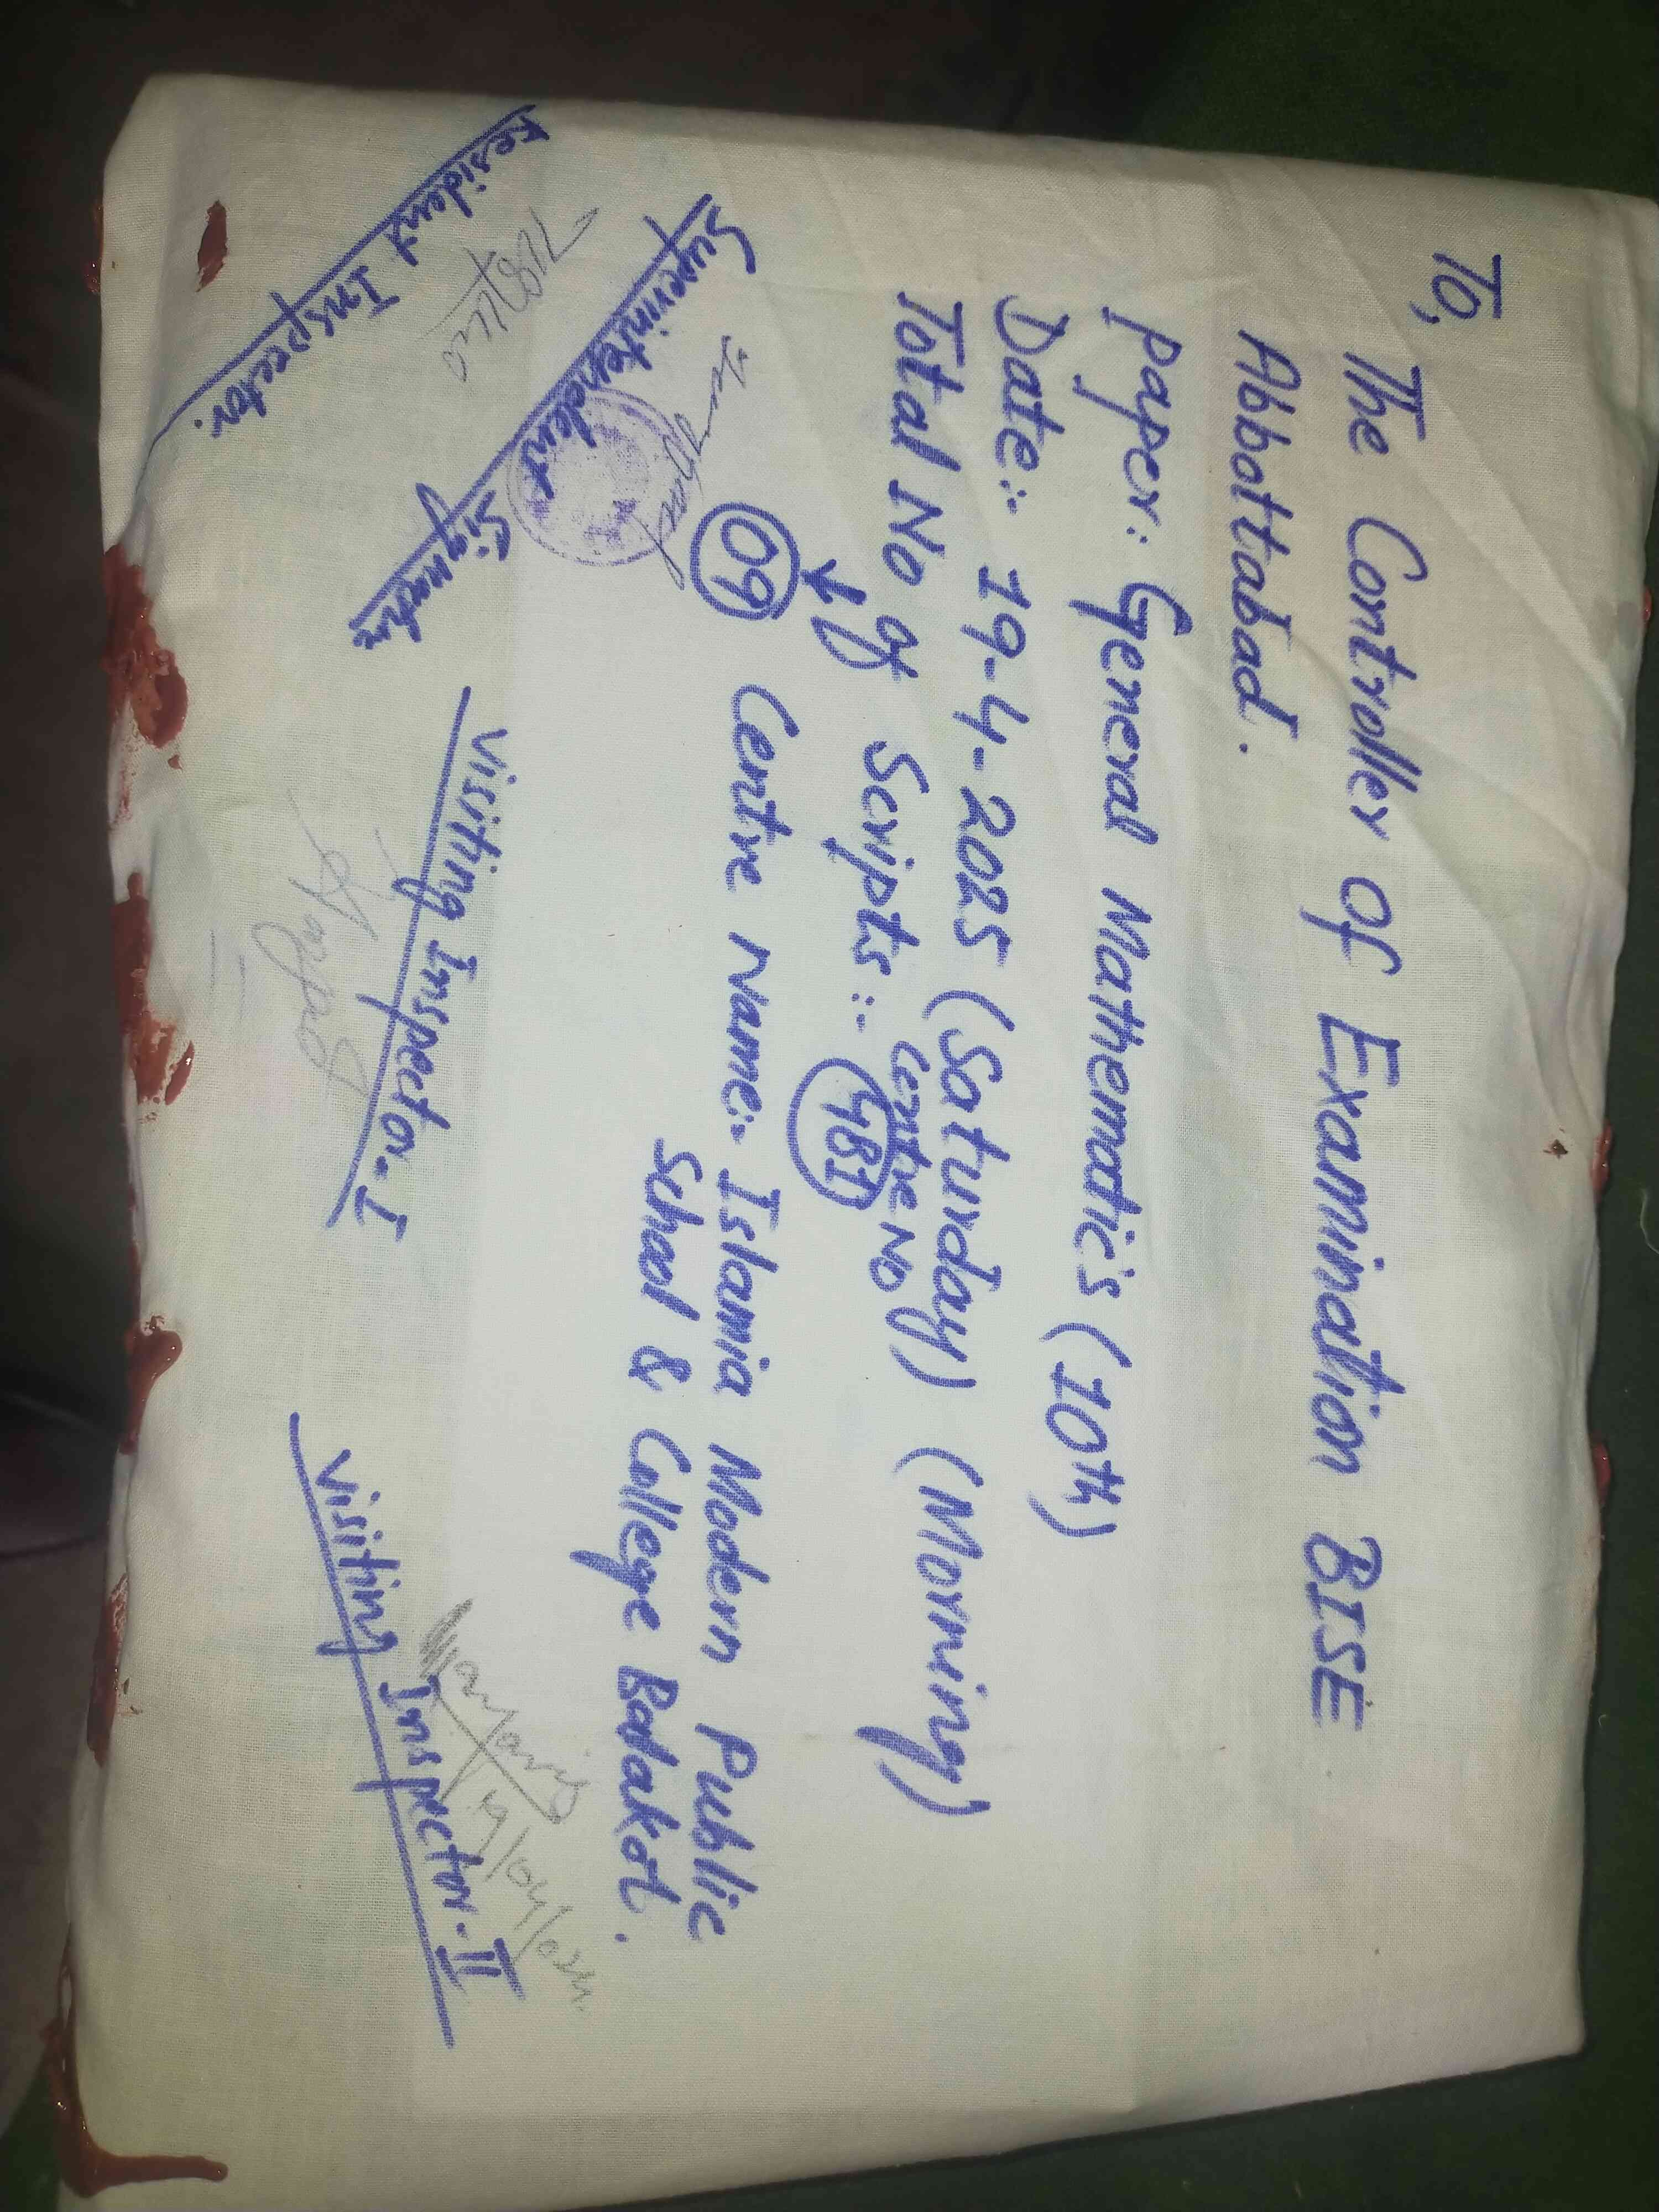 To,
The Controller Of Examination BISE
Abbottabad.
Paper: General Mathematic's (10th)
Date:- 19-4-2025 (Saturday) (Morning)
Total No of Scripts:-
Centre No
09
481
Centre Name:- Islamia Modern Public
School & College Badakot.
Superintendent
Signature
Resident Inspector.
Visiting Inspector-I
Visiting Inspector-II